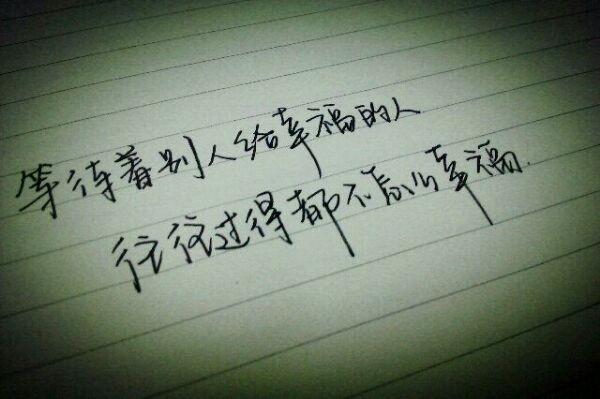 等待着别人给幸福的人
往往过得都不怎么幸福.